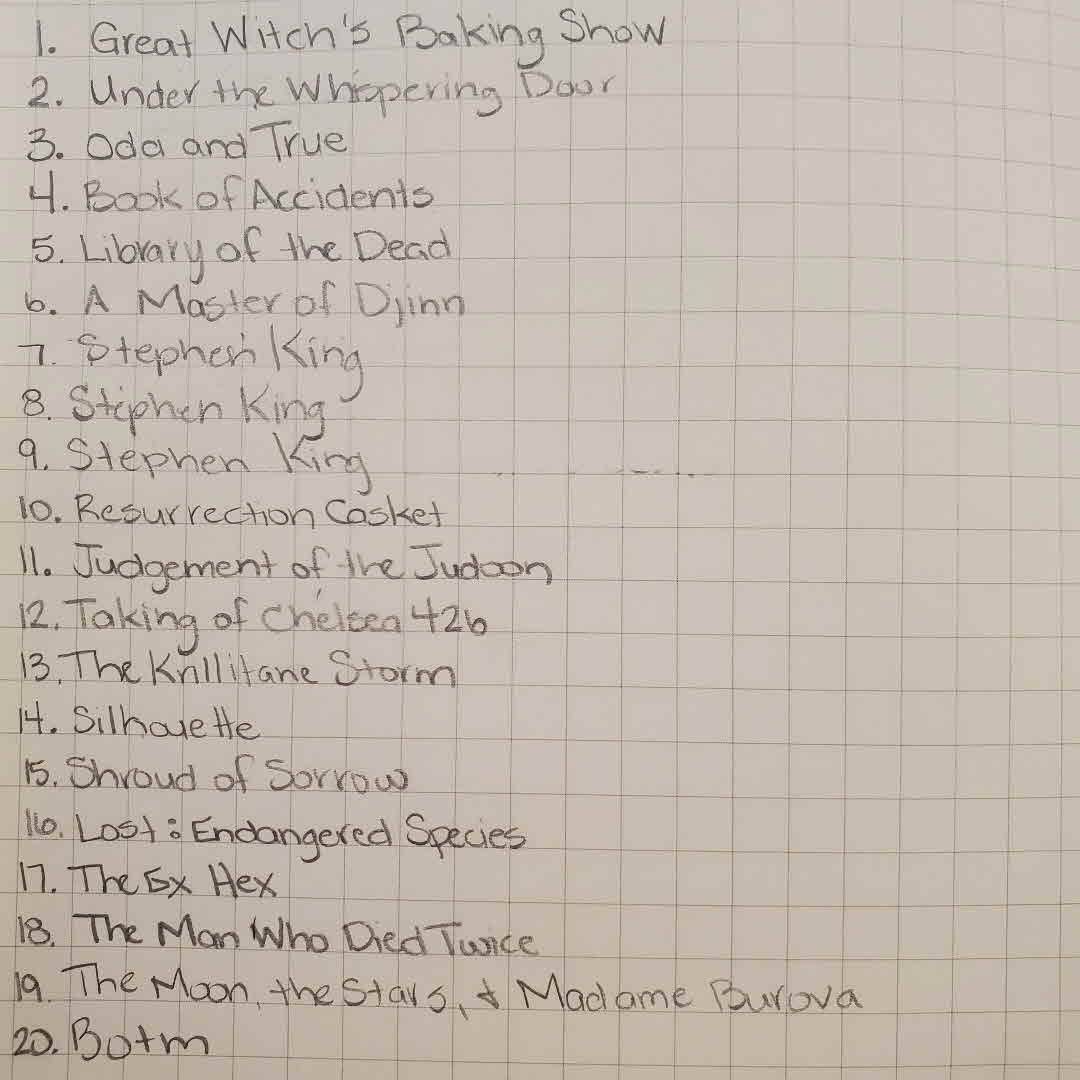 1. Great Witch's Baking Show
2. Under the Whispering Door
3. Oda and True
4. Book of Accidents
5. Library of the Dead
6. A Master of Djinn
7. Stephen King
8. Stephen King
9. Stephen King
10. Resurrection Casket
11. Judgement of the Judoon
12. Taking of Chelsea 426
13. The Krillitane Storm
14. Silhouette
15. Shroud of Sorrow
16. Lost: Endangered Species
17. The Ex Hex
18. The Man Who Died Twice
19. The Moon, the Stars, & Madame Burova
20. Botm